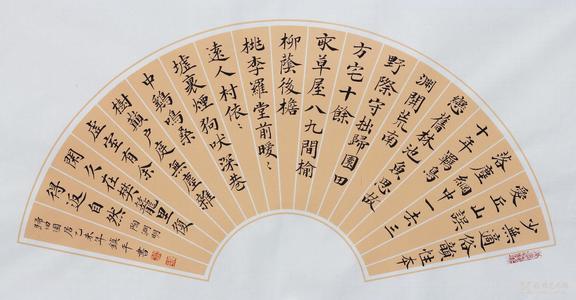 少無適俗韻性本
愛丘山誤
落塵網中一去三
十年羈鳥
戀舊林池魚思故
淵開荒南
野際守拙歸園田
方宅十餘
畝草屋八九間榆
柳蔭後檐
桃李羅堂前暧々
遠人村依々
墟裏煙狗吠深巷
中鷄鳴桑
樹巔户庭無塵雜
虛室有余
閑久在樊籠里復
得返自然 陶渊明
歸田園居 乙未年 鎮平書